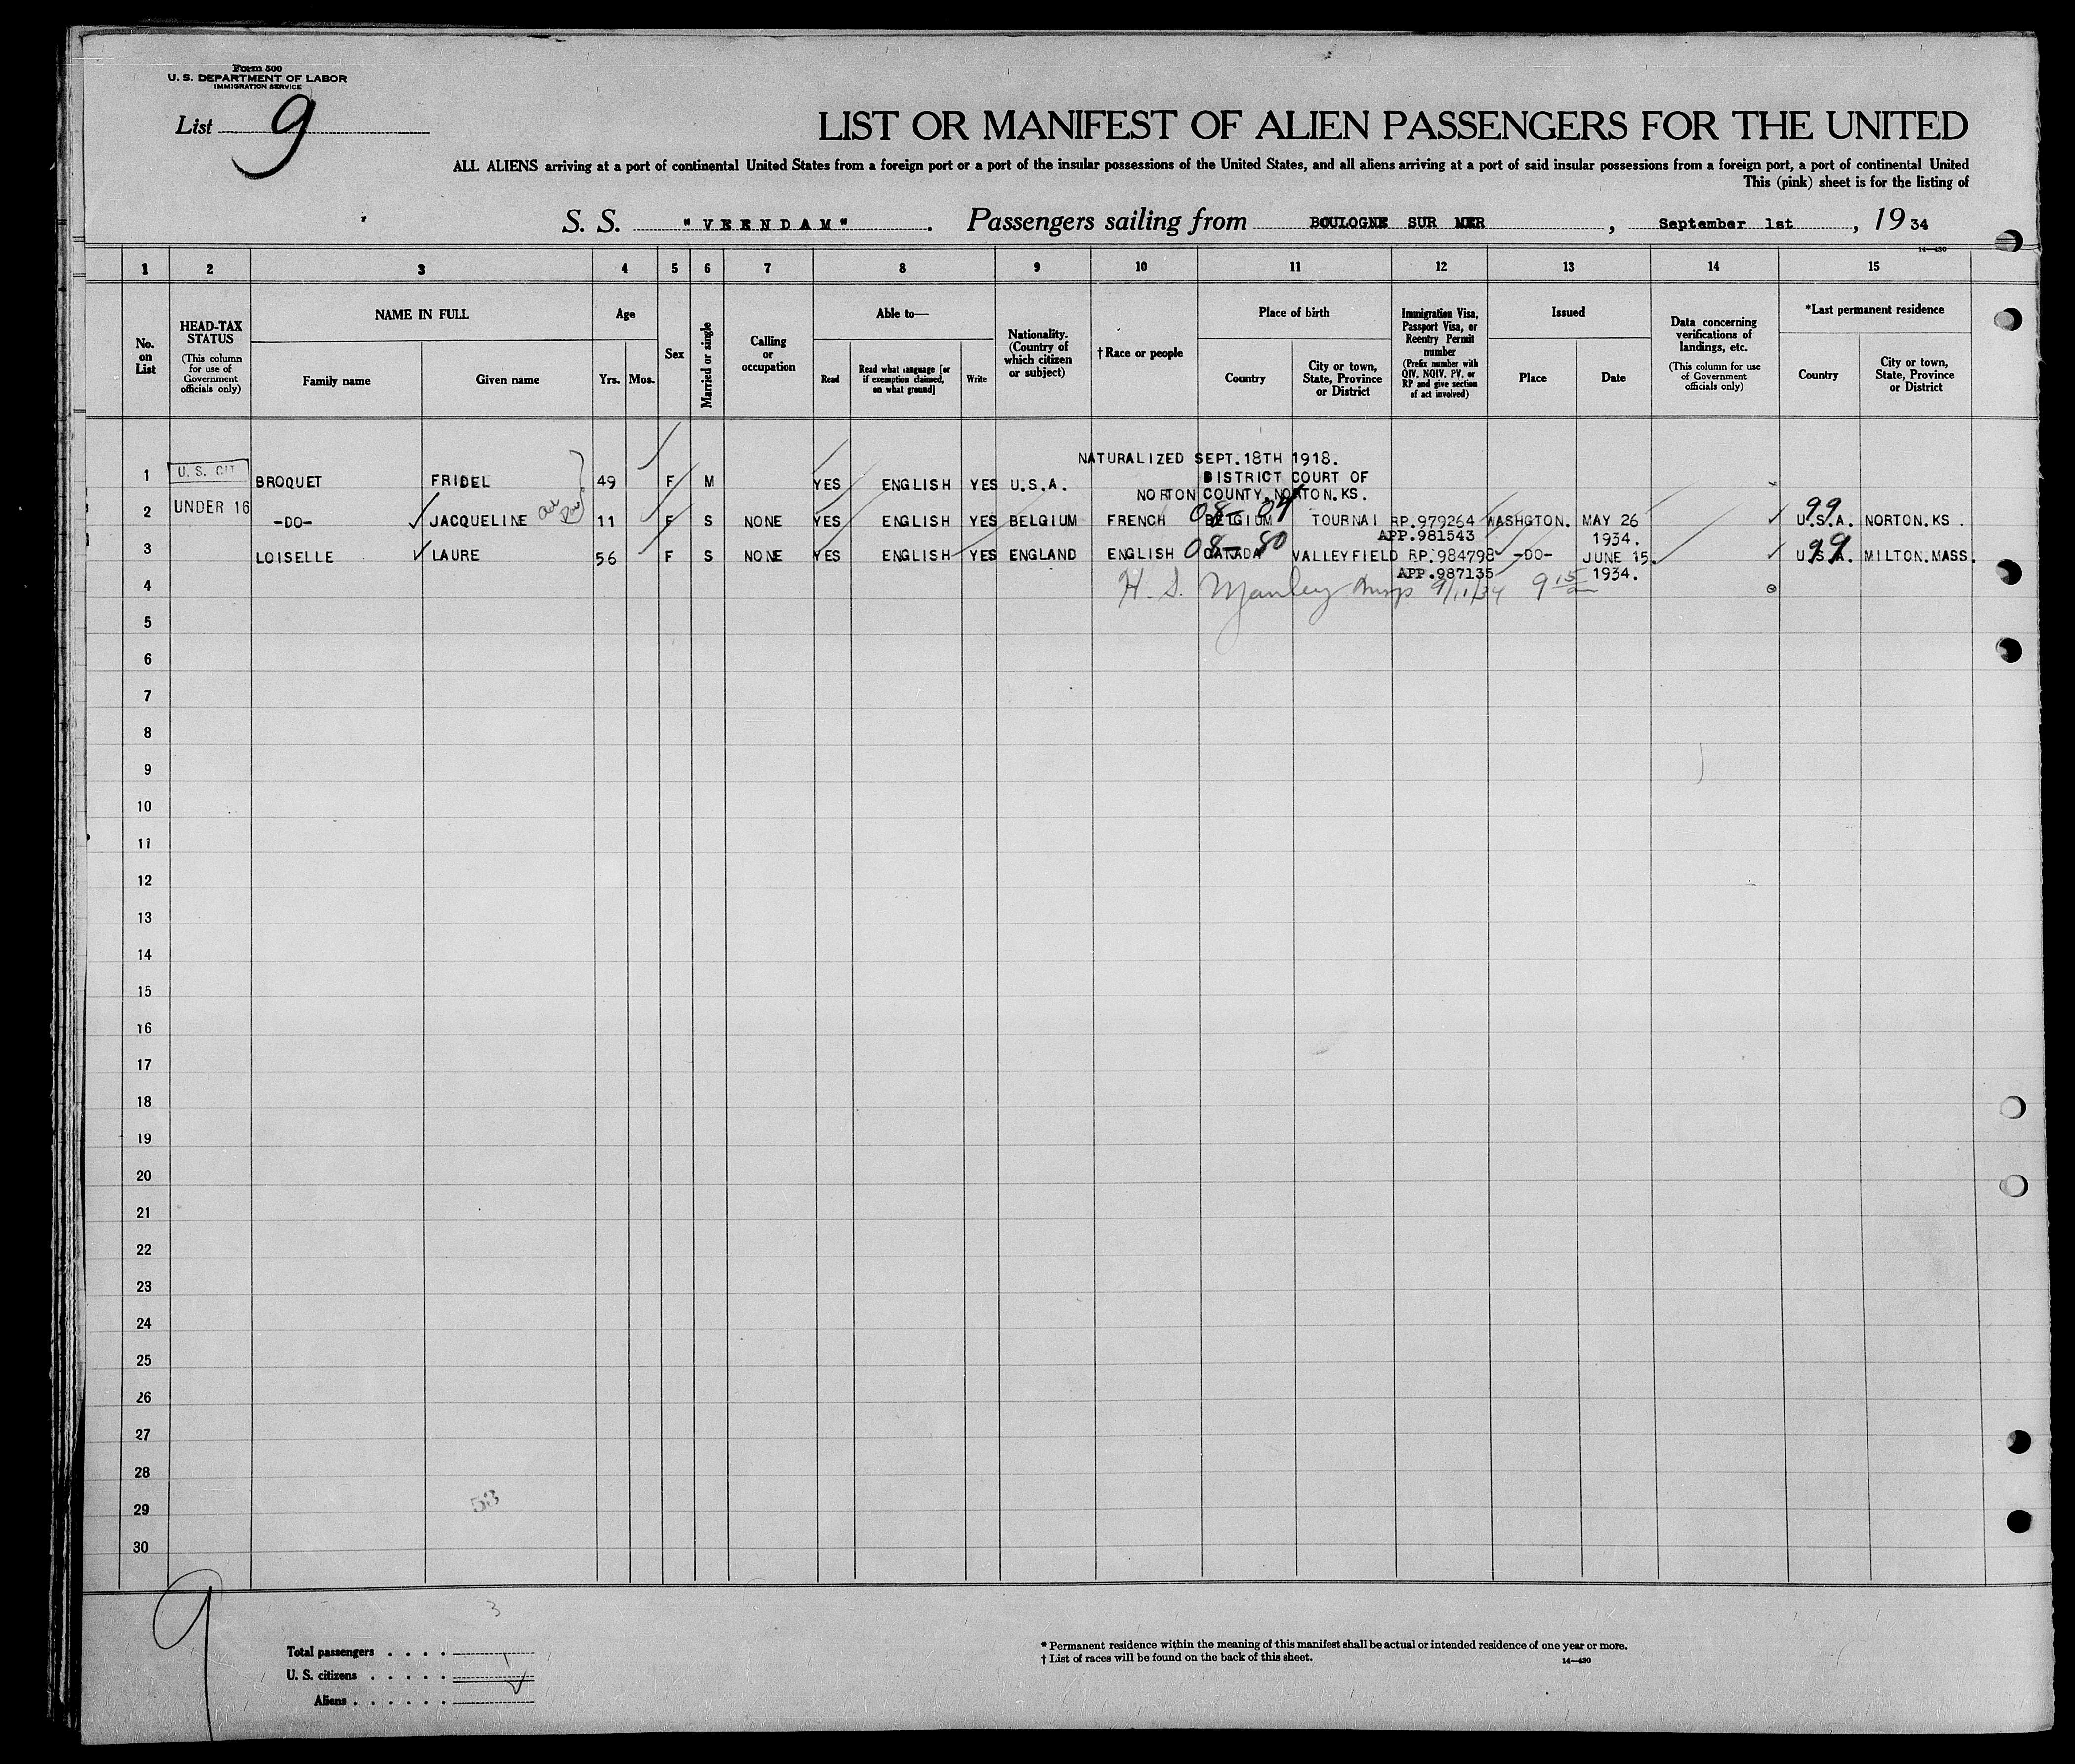 Form 500
U. S. DEPARTMENT OF LABOR
IMMIGRATION SERVICE
List 9
LIST OR MANIFEST OF ALIEN PASSENGERS FOR THE UNITED
ALL ALIENS arriving at a port of continental United States from a foreign port or a port of the insular possessions of the United States, and all aliens arriving at a port of said insular possessions from a foreign port, a port of continental United
This (pink) sheet is for the listing of
S. S. "VEENDAM" . Passengers sailing from BOULOGNE SUR MER , September 1st , 19 34
14—430
1 2 3 4 5 6 7 8 9 10 11 12 13 14 15
No. on List
HEAD-TAX STATUS
(This column for use of Government officials only)
NAME IN FULL
Family name Given name
Age
Yrs. Mos.
Sex
Married or single
Calling or occupation
Able to—
Read
Read what language [or if exemption claimed, on what ground]
Write
Nationality. (Country of which citizen or subject)
† Race or people
Place of birth
Country
City or town, State, Province or District
Immigration Visa, Passport Visa, or Reentry Permit number
(Prefix number with QIV, NQIV, PV, or RP and give section of act involved)
Issued
Place Date
Data concerning verifications of landings, etc.
(This column for use of Government officials only)
*Last permanent residence
Country
City or town, State, Province or District
NATURALIZED SEPT.18TH 1918.
1 U. S. CIT BROQUET FRIDEL 49 F M YES ENGLISH YES U.S.A. DISTRICT COURT OF
NORTON COUNTY, NORTON.KS.
08-04 99
2 UNDER 16 -DO- JACQUELINE 11 F S NONE YES ENGLISH YES BELGIUM FRENCH BELGIUM TOURNAI RP.979264 WASHGTON. MAY 26 U.S.A. NORTON.KS.
APP.981543 1934.
08-80 99
3 LOISELLE LAURE 56 F S NONE YES ENGLISH YES ENGLAND ENGLISH CANADA VALLEYFIELD RP.984798 -DO- JUNE 15. U.S.A. MILTON.MASS.
APP.987135 1934.
4 H. S. Manley 9/11/34 9 15
5
6
7
8
9
10
11
12
13
14
15
16
17
18
19
20
21
22
23
24
25
26
27
28
29 53
30
9
3
Total passengers . . . .
U. S. citizens . . . . .
Aliens . . . . . .
* Permanent residence within the meaning of this manifest shall be actual or intended residence of one year or more.
† List of races will be found on the back of this sheet.
14—430